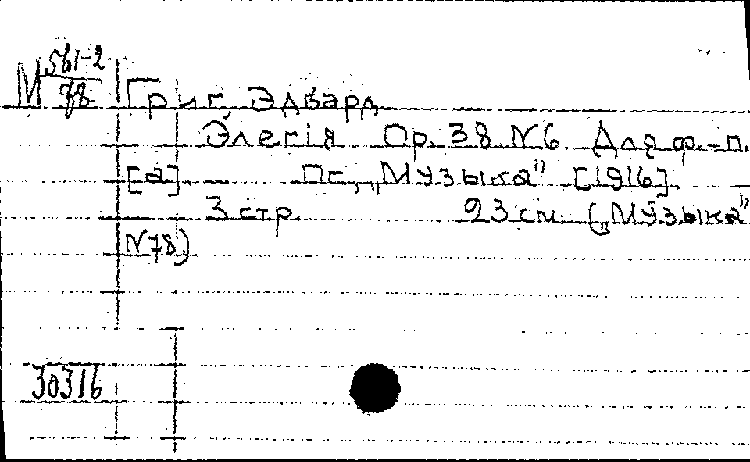 М 561-2
78
Григ Эдвард
Элегія Op. 38 N6. Для ф.-п.
[а] Пг., „Музыка" [1916]
3 стр. 23 см. („Музыка"
N78)
30316